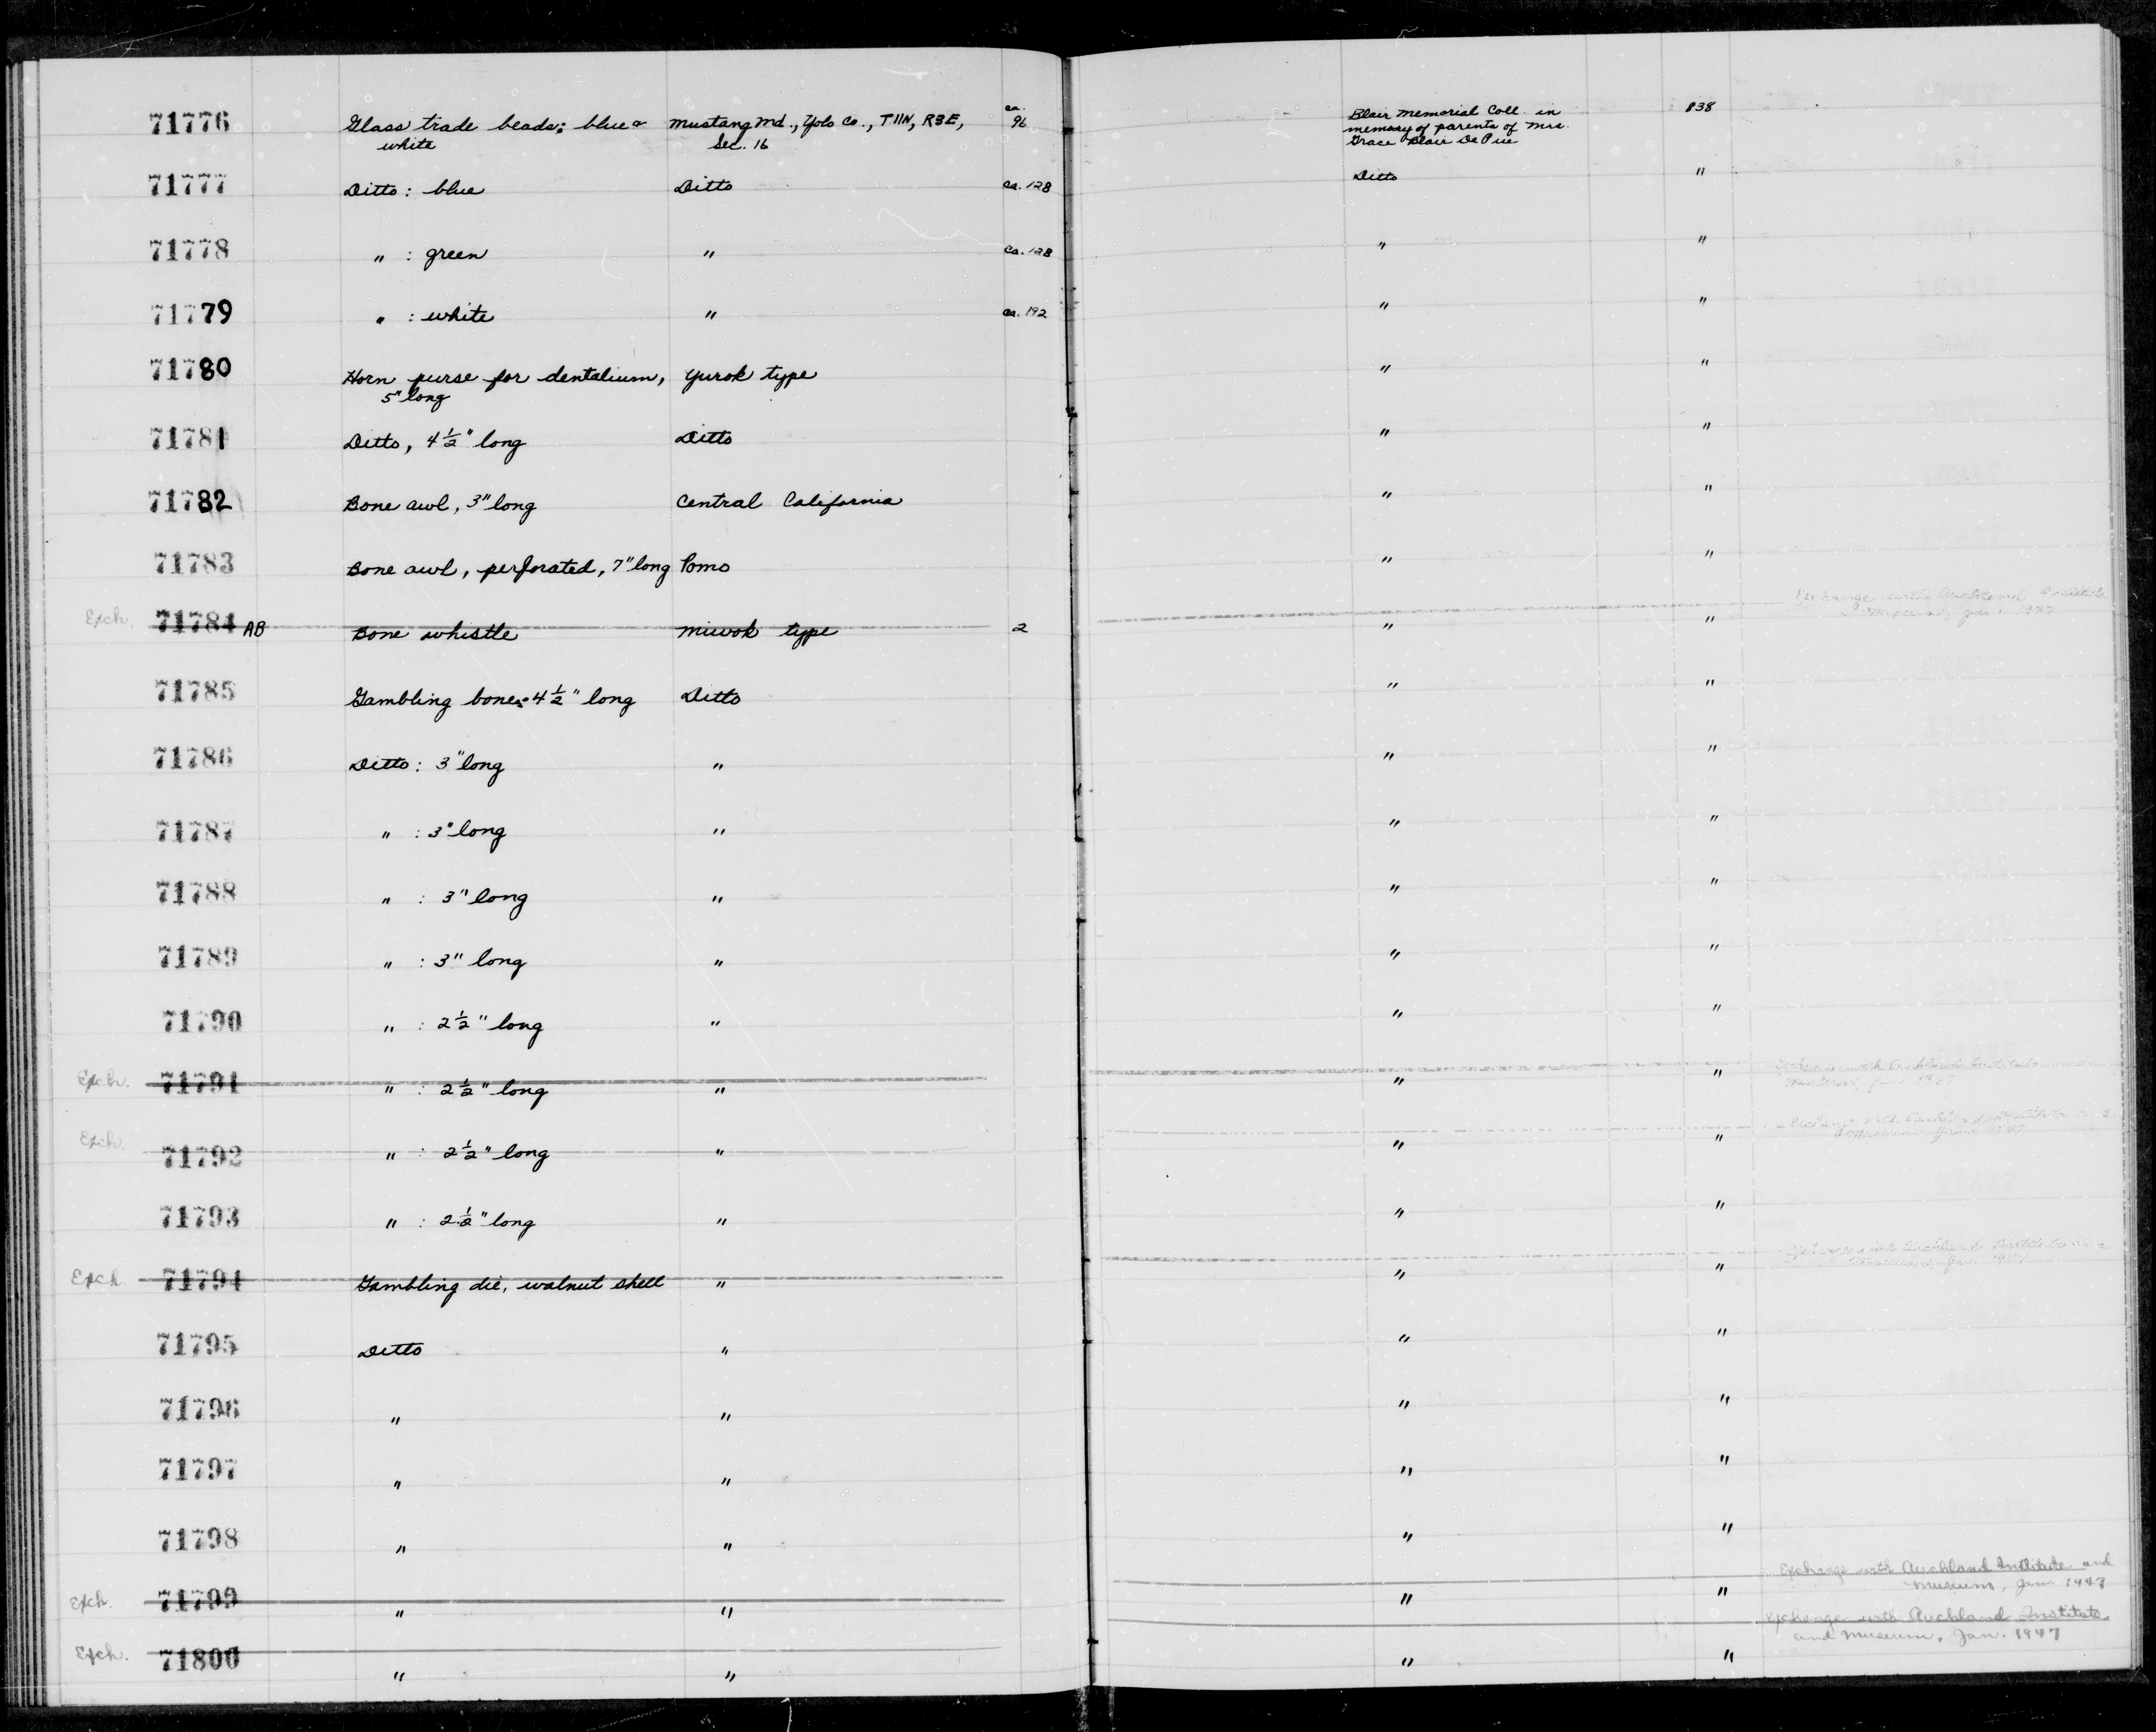 71776 Glass trade beads: blue & Mustang Md., Yolo Co., T11N, R3E, ca. 96 Blair Memorial Coll. in 838
white Sec. 16 memory of parents of Mrs.
Grace Blair De Pue
71777 Ditto: blue Ditto ca. 128 Ditto "
71778 " : green " ca. 128 " "
71779 " : white " ca. 192 " "
71780 Horn purse for dentalium, Yurok type " "
5" long
71781 Ditto, 4 1/2" long Ditto " "
71782 Bone awl, 3" long Central California " "
71783 Bone awl, perforated, 7" long Pomo " "
Exch. 71784 AB Bone whistle Miwok type 2 " " Exchange with Auckland Institute
Museum, Jan.
71785 Gambling bones: 4 1/2" long Ditto " "
71786 Ditto: 3" long " " "
71787 " : 3" long " " "
71788 " : 3" long " " "
71789 " : 3" long " " "
71790 " : 2 1/2" long " " "
Exch. 71791 " : 2 1/2" long " " " Exchange with Auckland Institute
Museum,
Exch. 71792 " : 2 1/2" long " " " Exchange with Auckland Institute and
Museum, Jan.
71793 " : 2 1/2" long " " "
Exch 71794 Gambling die, walnut shell " " " Exchange with Auckland Institute and
Museum, Jan.
71795 Ditto " " "
71796 " " " "
71797 " " " "
71798 " " " "
Exch. 71799 " " " " Exchange with Auckland Institute and
Museum, Jan.
Exch. 71800 " " " " Exchange with Auckland Institute
and Museum, Jan. 1947